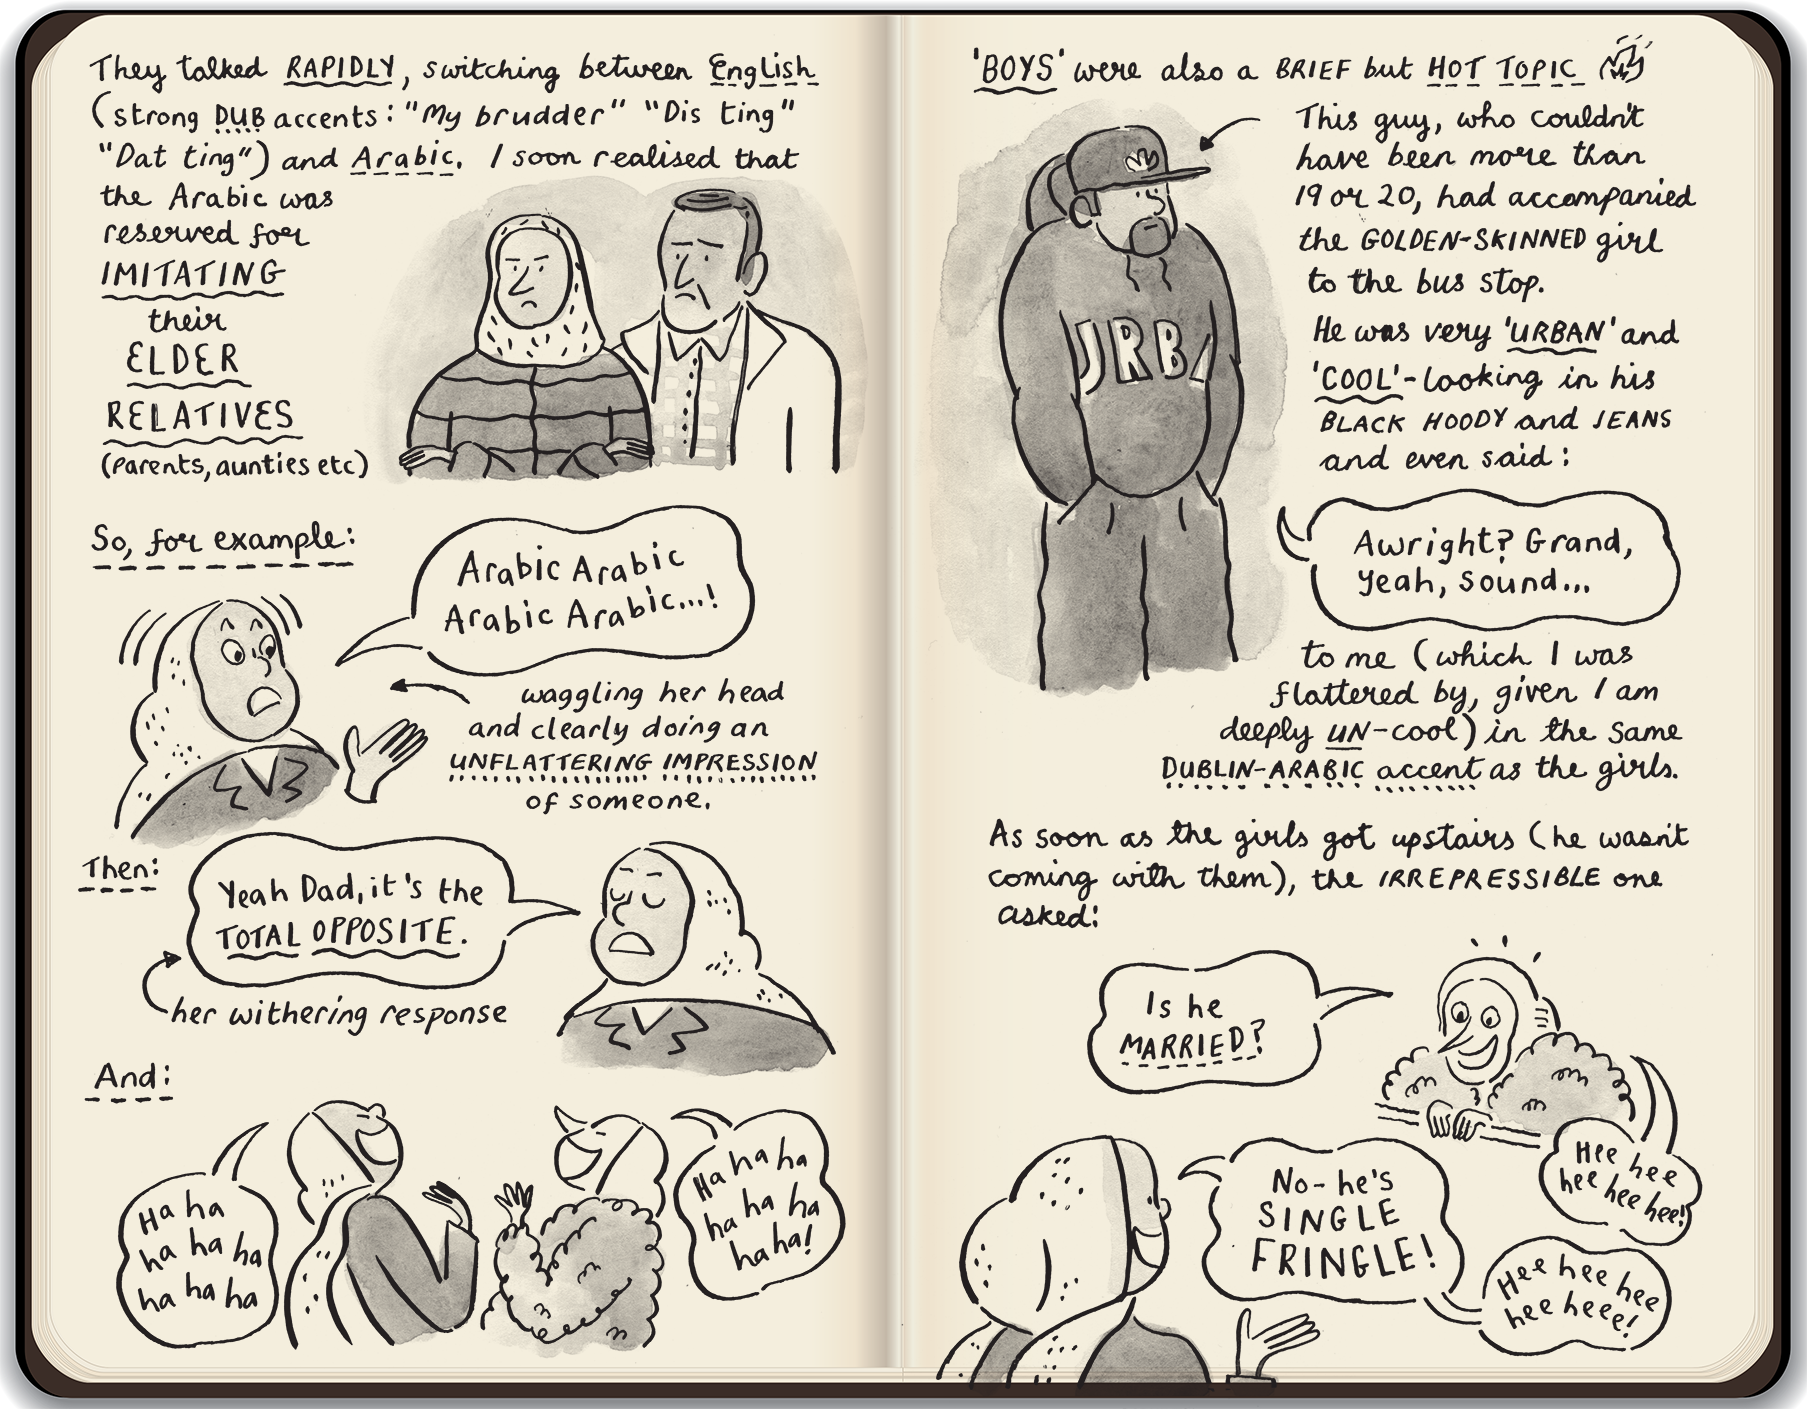 They talked RAPIDLY, switching between English
(strong DUB accents: "My brudder" "Dis ting"
"Dat ting") and Arabic. I soon realised that
the Arabic was
reserved for
IMITATING
their
ELDER
RELATIVES
(parents, aunties etc)
So, for example:
Arabic Arabic
Arabic Arabic...!
waggling her head
and clearly doing an
UNFLATTERING IMPRESSION
of someone.
Then:
Yeah Dad, it's the
TOTAL OPPOSITE.
her withering response
And:
Ha ha
ha ha ha
ha ha ha
Ha ha ha
ha ha ha
ha ha!
'BOYS' were also a BRIEF but HOT TOPIC
This guy, who couldn't
have been more than
19 or 20, had accompanied
the GOLDEN-SKINNED girl
to the bus stop.
URBA
He was very 'URBAN' and
'COOL'-looking in his
BLACK HOODY and JEANS
and even said:
Awright? Grand,
yeah, sound...
to me (which I was
flattered by, given I am
deeply UN-cool) in the same
DUBLIN-ARABIC accent as the girls.
As soon as the girls got upstairs (he wasn't
coming with them), the IRREPRESSIBLE one
asked:
Is he
MARRIED?
No- he's
SINGLE
FRINGLE!
Hee hee
hee hee hee!
Hee hee hee
hee heee!